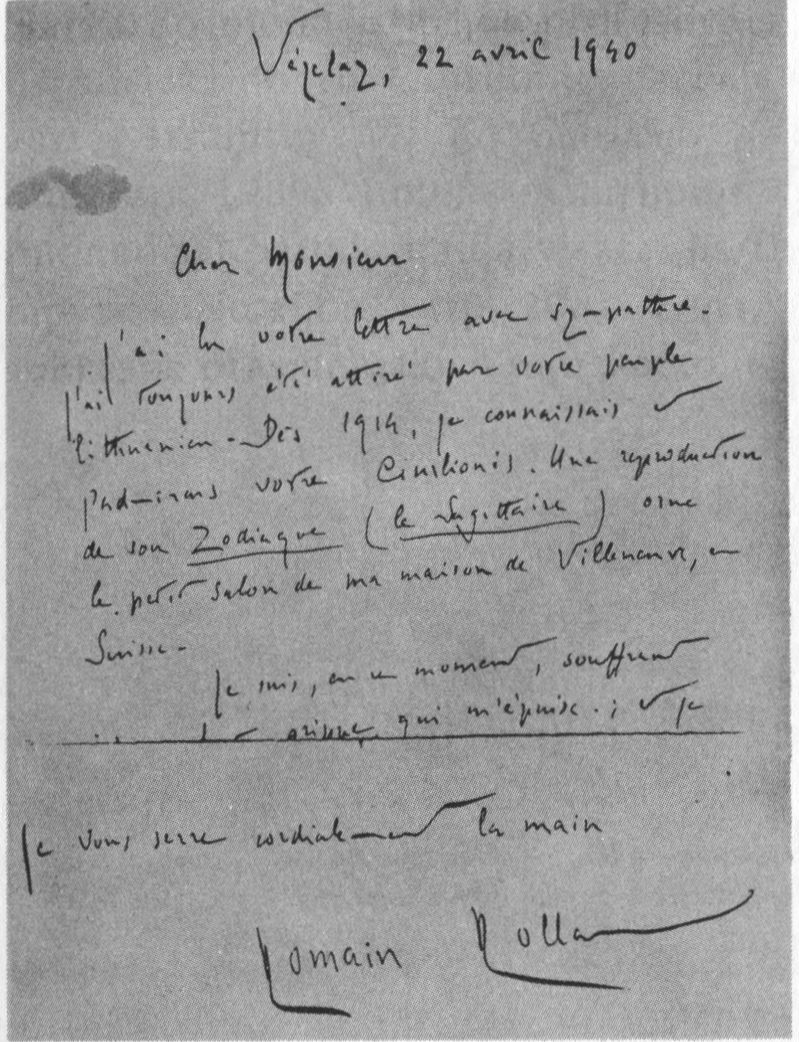 Vézelay, 22 avril 1940
Cher Monsieur
J'ai lu votre lettre avec sympathie.
J'ai toujours été attiré par votre peuple
lithuanien - Dès 1914, je connaissais et
j'admirais votre Ciurlionis. Une reproduction
de son Zodiaque (le Sagittaire) orne
le petit salon de ma maison de Villeneuve, en
Suisse -
Je suis, en ce moment, souffrant
grippe, qui m'épuise. ; et je
Je vous serre cordialement la main
Romain Rolland